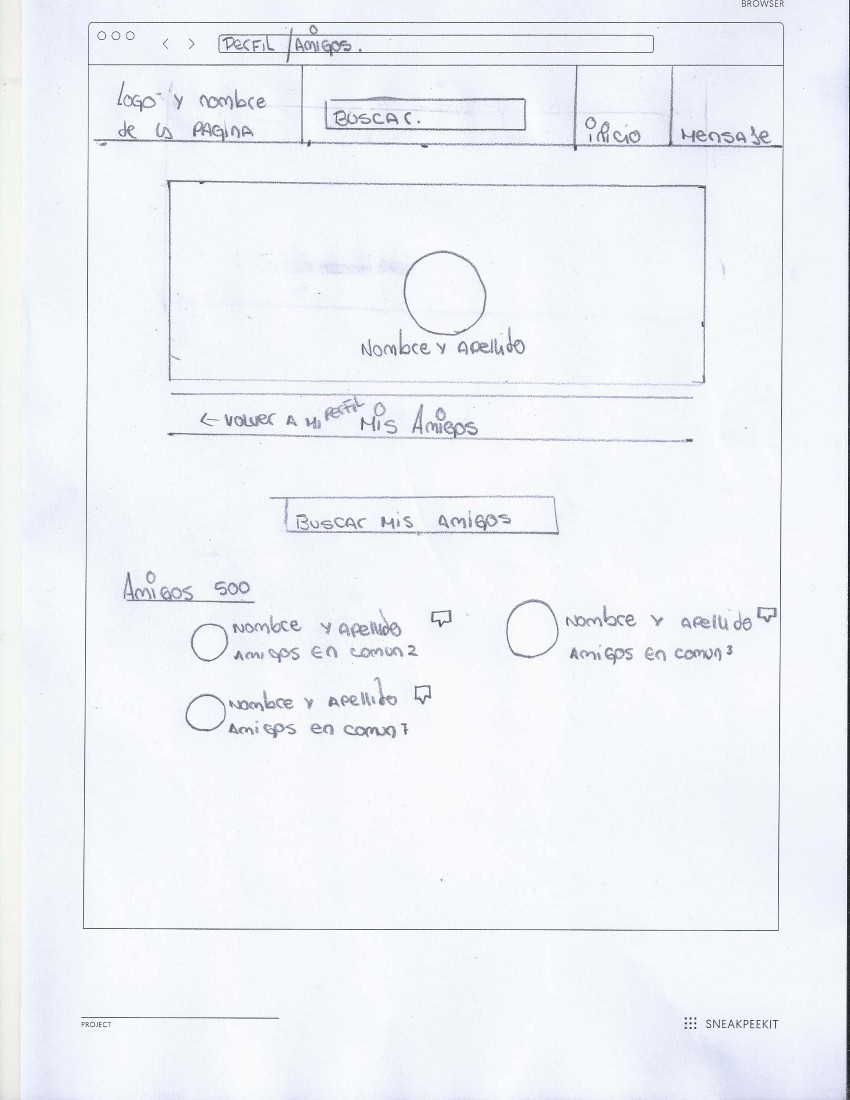 BROWSER
PERFIL / AMIGOS.
LOGO Y nombre
de la PAGINA
BUSCAR.
inicio
MENSAJE
Nombre y Apellido
← VOLVER A Mi PERFIL
Mis Amigos
BUSCAR MIS AMIGOS
AMIGOS 500
Nombre y Apellido
Amigos en comun 2
Nombre y Apellido
Amigos en comun 3
Nombre y Apellido
Amigos en comun 7
PROJECT
SNEAKPEEKIT